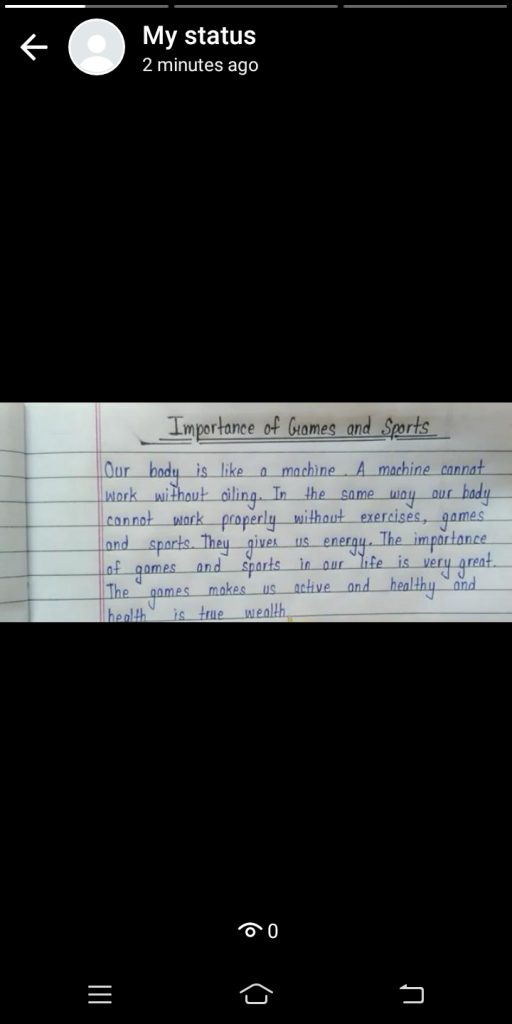 My status
2 minutes ago
Importance of Games and Sports
Our body is like a machine. A machine cannot
work without oiling. In the same way our body
cannot work properly without exercises, games
and sports. They gives us energy. The importance
of games and sports in our life is very great.
The games makes us active and healthy and
health is true wealth
0